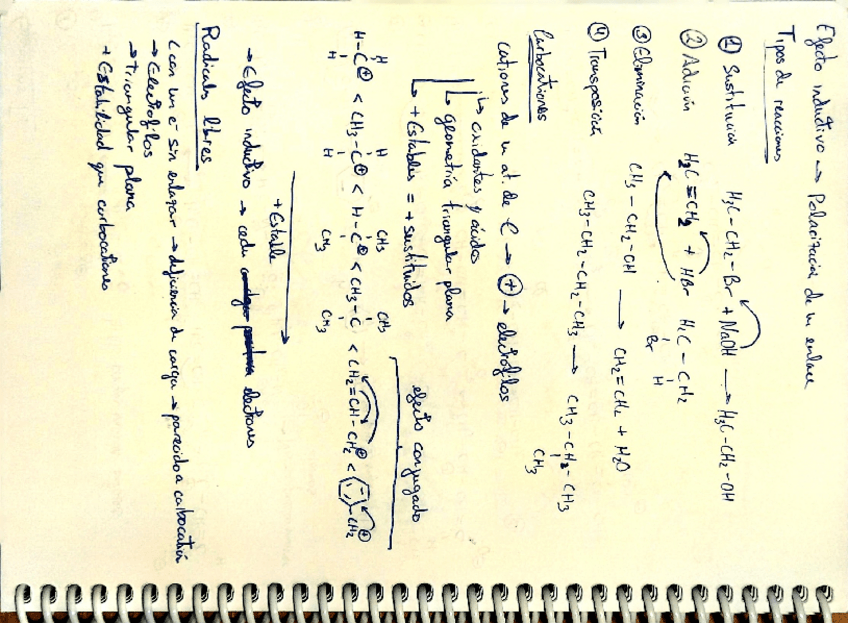 Efecto inductivo → Polarización de un enlace
Tipos de reacciones
① Sustitución H₃C-CH₂-Br + NaOH → H₃C-CH₂-OH
② Adición H₂C=CH₂ + HBr H₂C-CH₂
Br H
③ Eliminación CH₃-CH₂-OH → CH₂=CH₂ + H₂O
④ Transposición CH₃-CH₂-CH₂-CH₃ → CH₃-CH₂-CH₃
CH₃
Carbocationes
cationes de un at. de C → ⊕ → electrófilos
↳ oxidantes y ácidos
↳ geometría triangular plana
↳ + Estables = + sustituidos
efecto conjugado
H H CH₃ CH₃
H-C⊕ < CH₃-C⊕ < H-C⊕ < CH₃-C < CH₂=CH-CH₂⊕ < -CH₂⊕
H H CH₃ CH₃
+ Estable
→ Efecto inductivo → cede electrones
Radicales libres
↳ con un e⁻ sin enlazar → deficiencia de carga → parecido a carbocatión
→ Electrófilos
→ triangular plana
+ Estabilidad que carbocationes